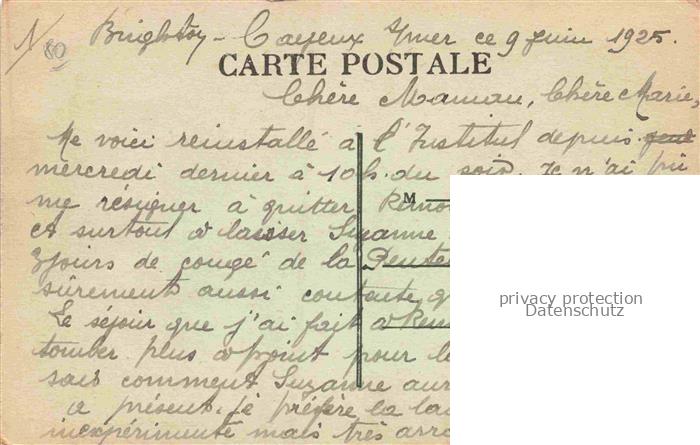 N 80
Brighton - Cayeux s/mer ce 9 Juin 1925.
CARTE POSTALE
Chère Maman, Chère Marie,
Me voici reinstallé à l'Institut depuis
mercredi dernier à 10h. du soir. Je n'ai pu
me résigner à quitter
M
et surtout à laisser Suzanne
3 jours de congé de la
sûrement aussi contente
Le séjour que j'ai fait à
tomber plus à point pour
sais comment Suzanne
à présent. je préfère la
inexpérimenté mais très
privacy protection
Datenschutz